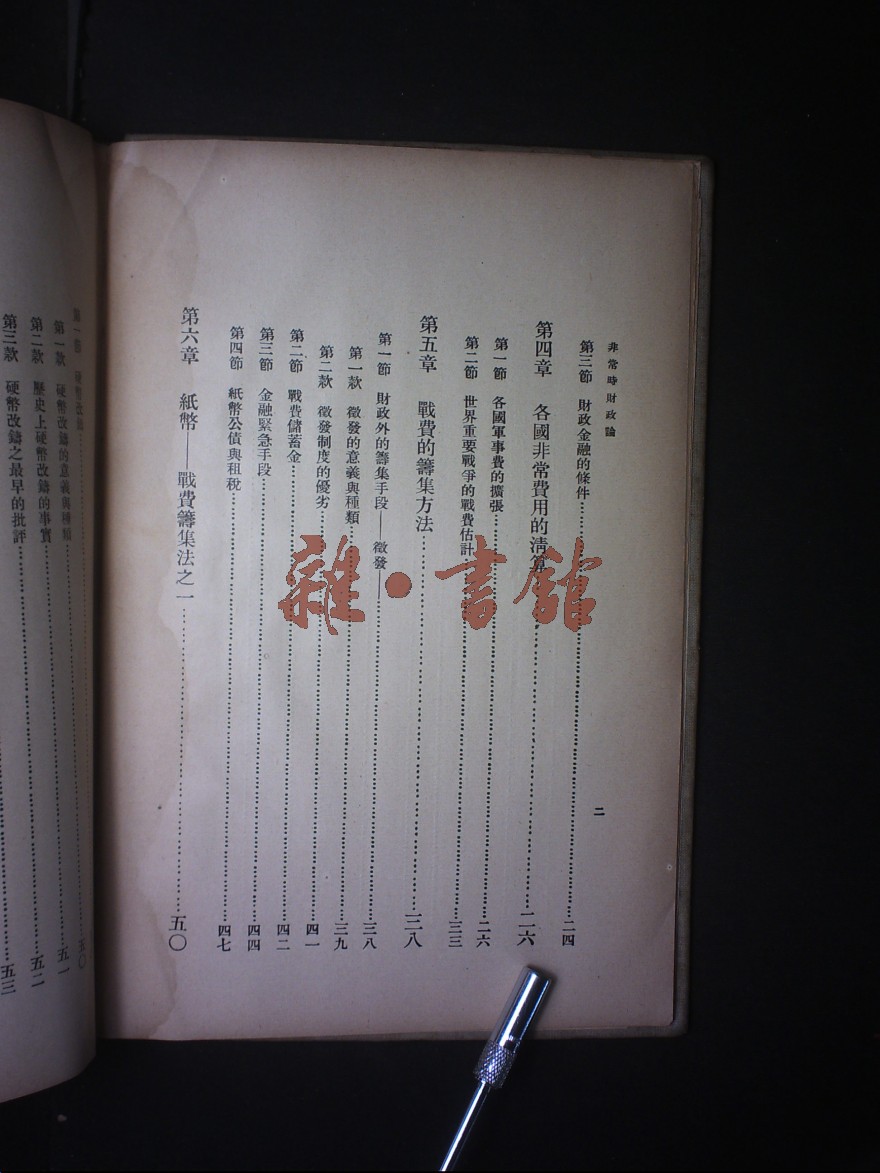 非常時財政論
二
第三節 財政金融的條件……二四
第四章 各國非常費用的清算……二六
第一節 各國軍事費的擴張……二六
第二節 世界重要戰爭的戰費估計……三三
第五章 戰費的籌集方法……三八
第一節 財政外的籌集手段——徵發——……三八
第一款 徵發的意義與種類……三九
第二款 徵發制度的優劣……四一
第二節 戰費儲蓄金……四二
第三節 金融緊急手段……四四
第四節 紙幣公債與租稅……四七
第六章 紙幣——戰費籌集法之一……五〇
第一節 硬幣改鑄……五〇
第一款 硬幣改鑄的意義與種類……五一
第二款 歷史上硬幣改鑄的事實……五二
第三款 硬幣改鑄之最早的批評……五三
雜·書館